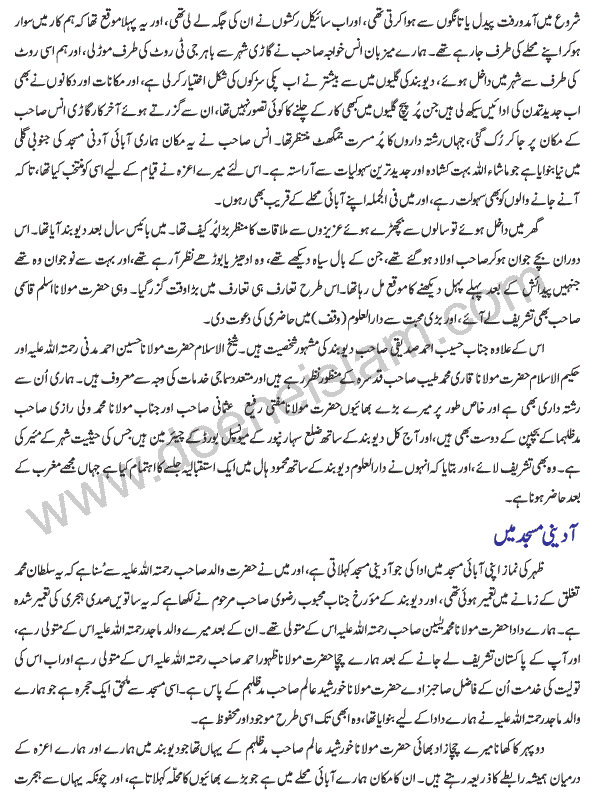 شروع میں آمد ورفت پیدل یا تانگوں سے ہوا کرتی تھی، اور اب سائیکل رکشوں نے ان کی جگہ لے لی تھی، اور یہ پہلا موقع تھا کہ ہم کار میں سوار
ہو کر اپنے محلے کی طرف جا رہے تھے۔ ہمارے میزبان انس خواجہ صاحب نے گاڑی شہر سے باہر جی ٹی روٹ کی طرف موڑلی، اور ہم اسی روٹ
کی طرف سے شہر میں داخل ہوئے، دیوبند کی گلیوں میں سے بیشتر نے اب پکی سڑکوں کی شکل اختیار کرلی ہے، اور مکانات اور دکانوں نے بھی
اب جدید تمدن کی ادائیں سیکھ لی ہیں جن پُر پیچ گلیوں میں کبھی کار کے چلنے کا کوئی تصور نہیں تھا، ان سے گزرتے ہوئے آخر کار گاڑی انس صاحب
کے مکان پر جا کر رُک گئی، جہاں رشتہ داروں کا پُر مسرت جمگھٹ منتظر تھا۔ انس صاحب نے یہ مکان ہماری آبائی آدنی مسجد کی جنوبی گلی
میں نیا بنوایا ہے جو ماشاء اللہ بہت کشادہ اور جدید ترین سہولیات سے آراستہ ہے۔ اس لئے میرے اعزہ نے قیام کے لیے اسی کو منتخب کیا تھا، تا کہ
آنے جانے والوں کو بھی سہولت رہے، اور میں فی الجملہ اپنے آبائی محلے کے قریب بھی رہوں۔
گھر میں داخل ہوئے تو سالوں سے بچھڑے ہوئے عزیزوں سے ملاقات کا منظر بڑا پُر کیف تھا۔ میں بائیس سال بعد دیوبند آیا تھا۔ اس
دوران بچے جوان ہو کر صاحب اولاد ہو گئے تھے، جن کے بال سیاہ دیکھے تھے، وہ ادھیڑ یا بوڑھے نظر آرہے تھے، اور بہت سے نوجوان وہ تھے
جنہیں پیدائش کے بعد پہلے پہل دیکھنے کا موقع مل رہا تھا۔ اس طرح تعارف ہی تعارف میں بڑا وقت گزر گیا۔ وہی حضرت مولانا اسلم قاسمی
صاحب بھی تشریف لے آئے، اور بڑی محبت سے دار العلوم (وقف) میں حاضری کی دعوت دی۔
اس کے علاوہ جناب حسیب احمد صدیقی صاحب دیوبند کی مشہور شخصیت ہیں۔ شیخ الاسلام حضرت مولانا حسین احمد مدنی رحمتہ اللہ علیہ اور
حکیم الاسلام حضرت مولانا قاری محمد طیب صاحب قدسرہ کے منظور نظر رہے ہیں اور متعدد سماجی خدمات کی وجہ سے معروف ہیں۔ ہماری اُن سے
رشتہ داری بھی ہے اور خاص طور پر میرے بڑے بھائیوں حضرت مولانا مفتی رفیع عثمانی صاحب اور جناب مولانا محمد ولی رازی صاحب
مدظلہما کے بچپن کے دوست بھی ہیں، اور آج کل دیوبند کے ساتھ ضلع سہارنپور کے میونسپل بورڈ کے چیئرمین ہیں جس کی حیثیت شہر کے میئر کی
ہے۔ وہ بھی تشریف لائے، اور بتایا کہ انہوں نے دار العلوم دیوبند کے ساتھ محمود ہال میں ایک استقبالیہ جلسے کا اہتمام کیا ہے جہاں مجھے مغرب کے
بعد حاضر ہونا ہے۔
آدینی مسجد میں
ظہر کی نماز اپنی آبائی مسجد میں ادا کی جو آدینی مسجد کہلاتی ہے، اور میں نے حضرت والد صاحب رحمتہ اللہ علیہ سے سُنا ہے کہ یہ سلطان محمد
تغلق کے زمانے میں تعمیر ہوئی تھی، اور دیوبند کے مؤرخ جناب محبوب رضوی صاحب مرحوم نے لکھا ہے کہ یہ ساتویں صدی ہجری کی تعمیر شدہ
ہے۔ ہمارے دادا حضرت مولانا محمد یٰسین صاحب رحمتہ اللہ علیہ اس کے متولی تھے۔ ان کے بعد میرے والد ماجد رحمتہ اللہ علیہ اس کے متولی رہے،
اور آپ کے پاکستان تشریف لے جانے کے بعد ہمارے چچا حضرت مولانا ظہور احمد صاحب رحمتہ اللہ علیہ اس کے متولی رہے اور اب اس کی
تولیت کی خدمت اُن کے فاضل صاحبزادے حضرت مولانا خورشید عالم صاحب مدظلہم کے پاس ہے۔ اسی مسجد سے ملحق ایک حجرہ ہے جو ہمارے
والد ماجد رحمتہ اللہ علیہ نے ہمارے دادا کے لیے بنوایا تھا، وہ ابھی تک اسی طرح موجود اور محفوظ ہے۔
دوپہر کا کھانا میرے چچا زاد بھائی حضرت مولانا خورشید عالم صاحب مدظلہم کے یہاں تھا جو دیوبند میں ہمارے اور ہمارے اعزہ کے
درمیان ہمیشہ رابطے کا ذریعہ رہتے ہیں۔ ان کا مکان ہمارے آبائی محلے میں ہے جو بڑے بھائیوں کا محلہ کہلاتا ہے، اور چونکہ یہاں سے ہجرت
www.deeneislam.com